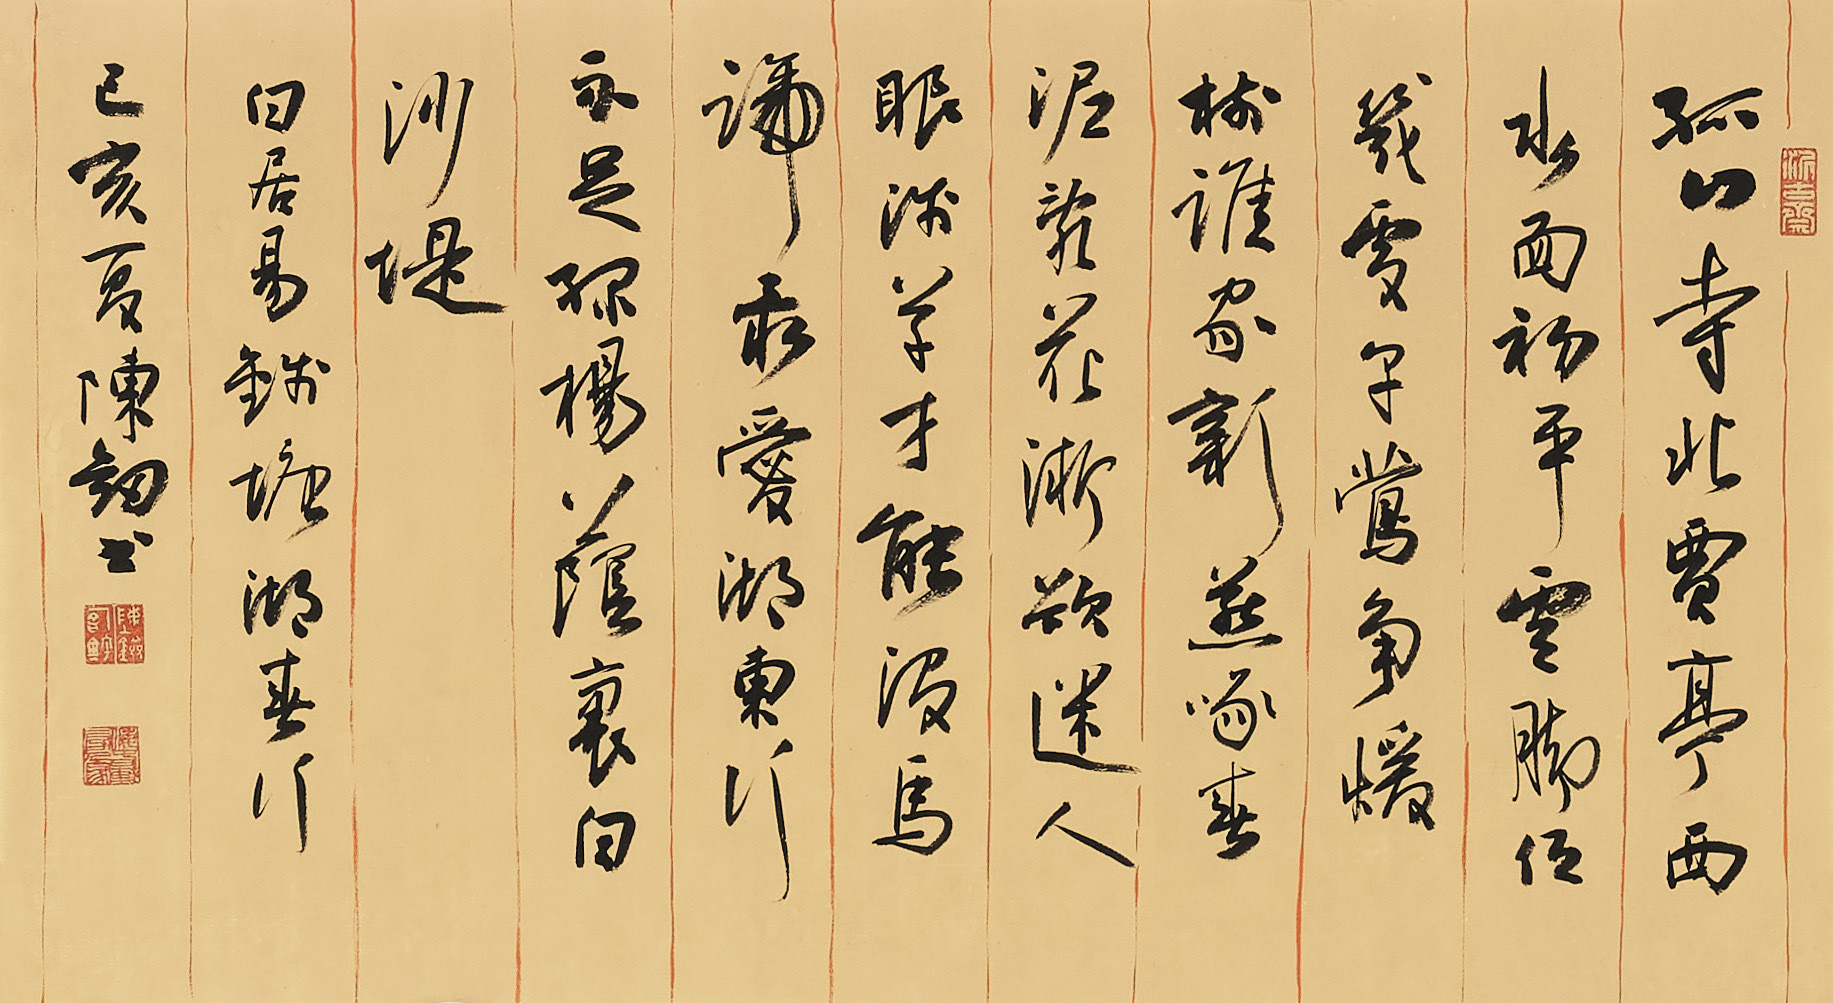 孤山寺北賈亭西
水面初平雲腳低
幾處早鶯爭暖
樹誰家新燕啄春
泥亂花漸欲迷人
眼淺草才能沒馬
蹄最愛湖東行
不足綠楊陰裏白
沙堤
白居易錢塘湖春行
己亥夏陳
書